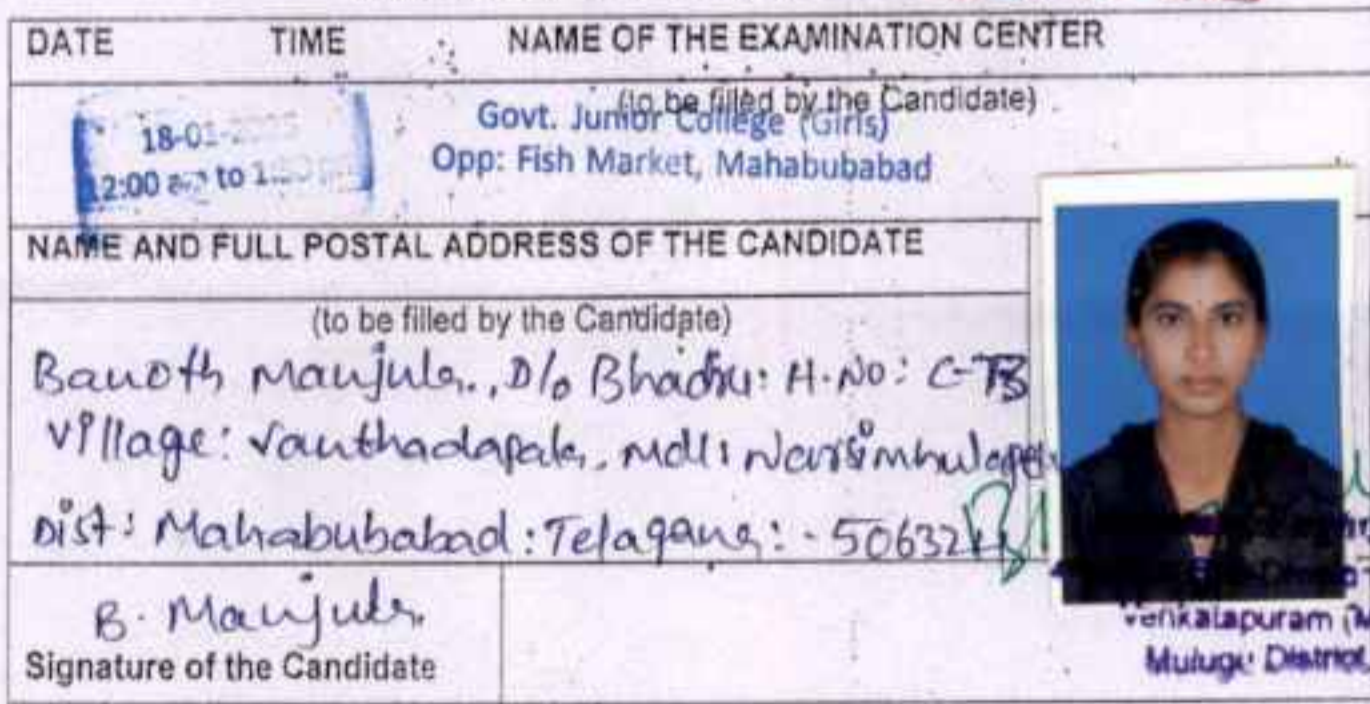 DATE TIME NAME OF THE EXAMINATION CENTER
(to be filled by the Candidate)
18-01-
12:00 to
Govt. Junior College (Girls)
Opp: Fish Market, Mahabubabad
NAME AND FULL POSTAL ADDRESS OF THE CANDIDATE
(to be filled by the Candidate)
Banoth Manjula, D/o Bhadru: H.No:
Village: Vanthadapala, Mdl: Narsimhulapet
Dist: Mahabubabad: Telagana: - 506324
B. Manjula
Signature of the Candidate
Venkatapuram (M
Mulugu District